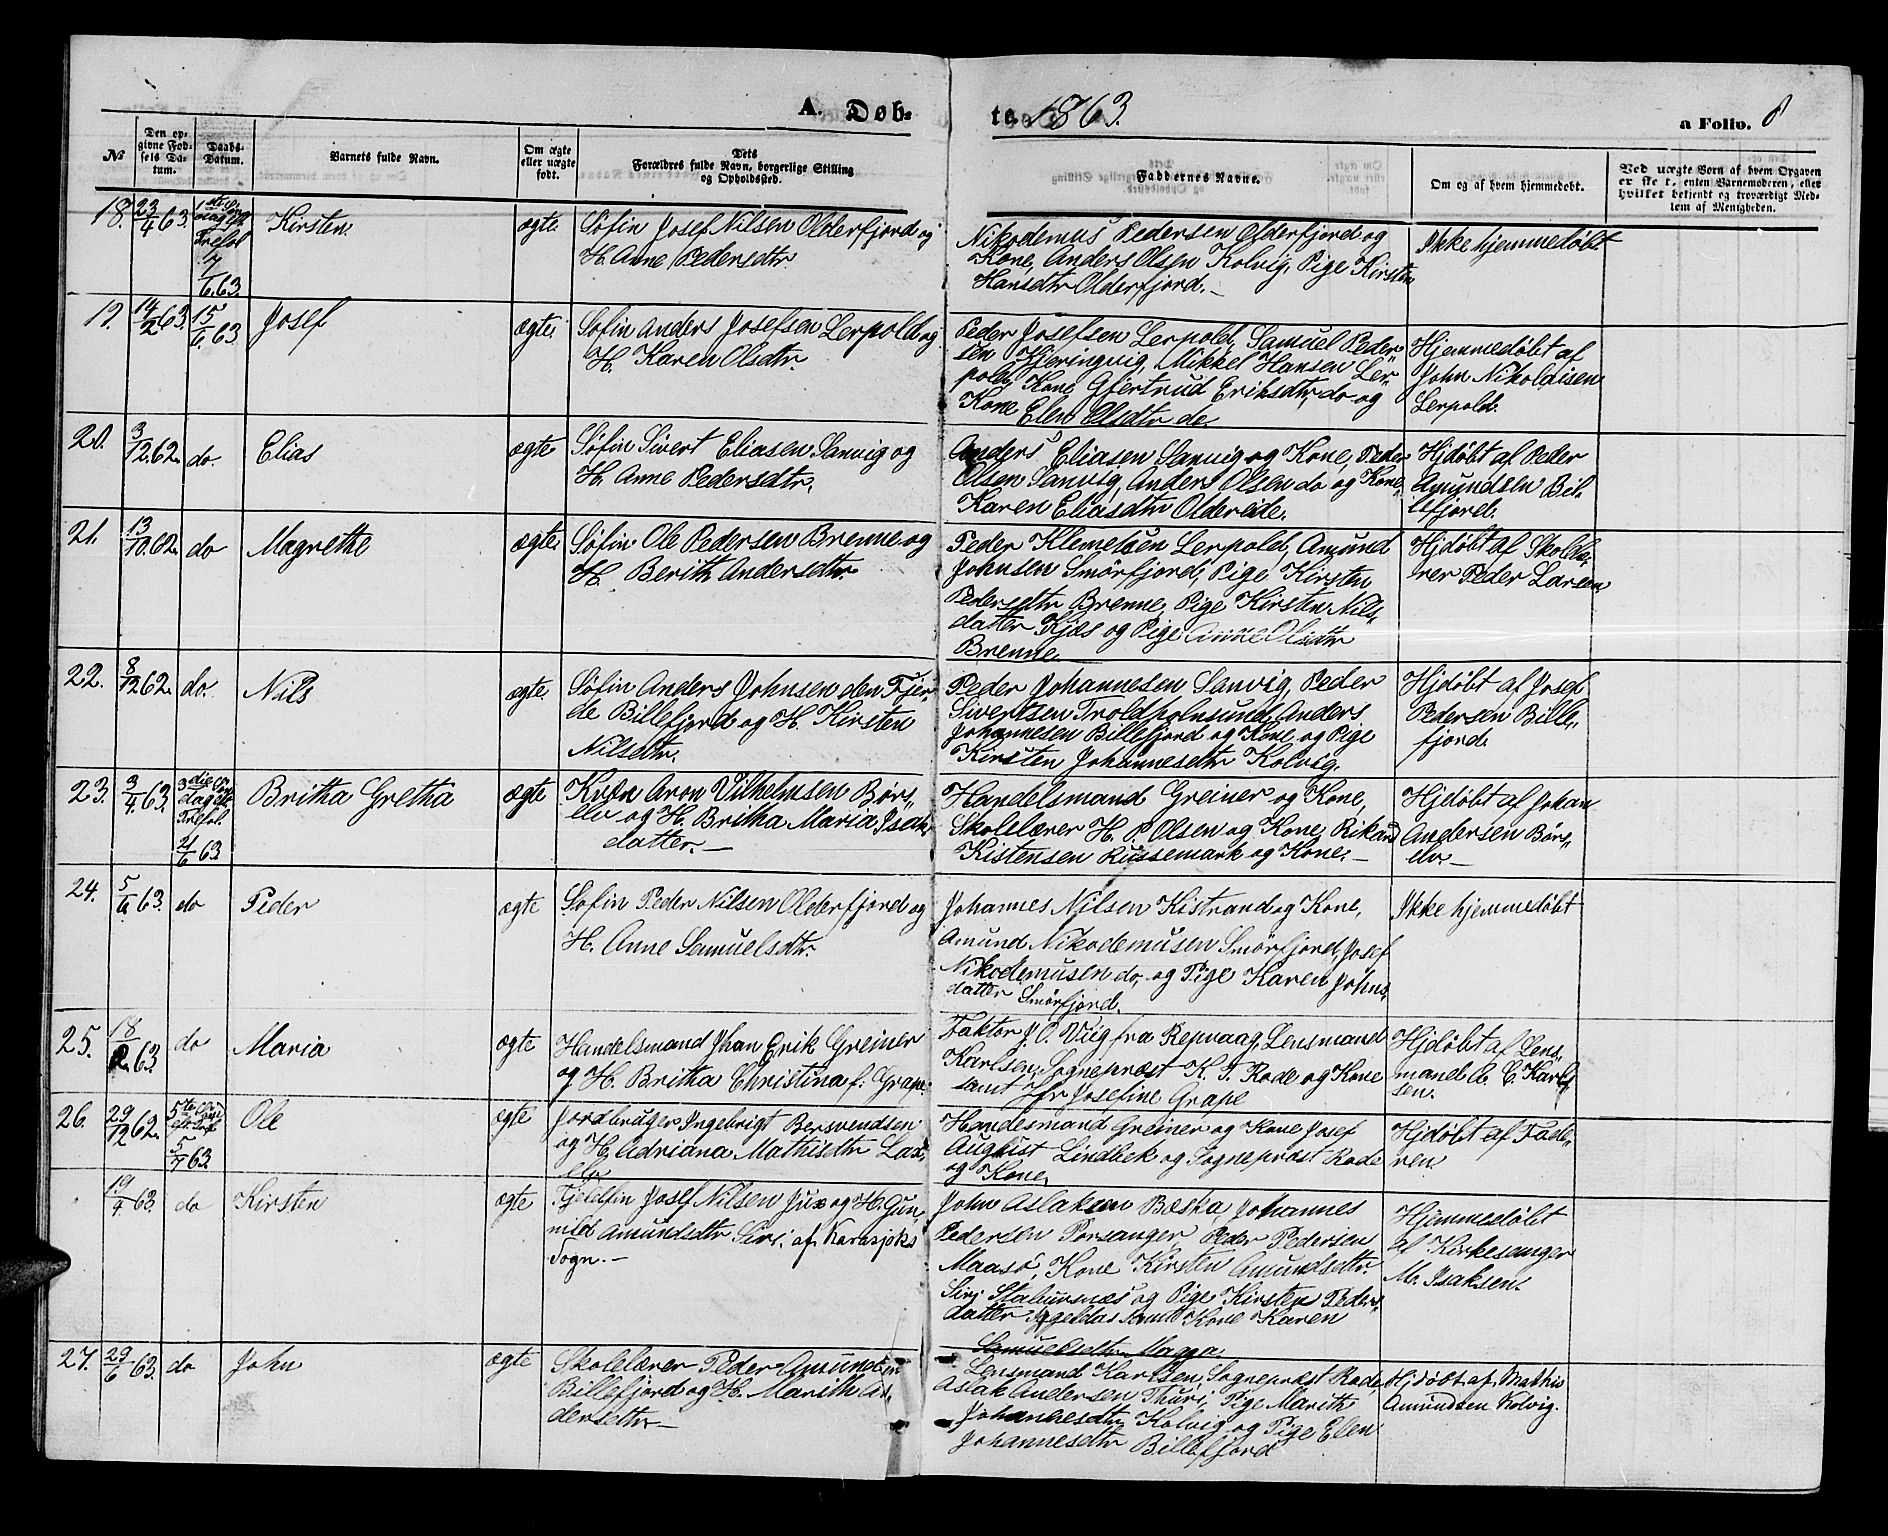 A. Døb-
te 1863.
a Folio. 8
№
Den op-
givne Fød-
sels Da-
tum.
Daabs-
Datum.
Barnets fulde Navn.
Om ægte
eller uægte
født.
Dets
Forældres fulde Navn, borgerlige Stilling
og Opholdssted.
Faddernes Navne.
Om og af hvem hjemmedøbt.
Ved uægte Børn af hvem Opgaven
er skeet, enten Barnemoderen, eller
hvilket bekjendt og troværdigt Med-
lem af Menigheden.
18. 23/4 63.
Trefol.
7/6. 63.
Kirsten.
ægte.
Søfin Josef Nilsen Olderfjord og
H. Anne Pedersdtr.
Nikodemus Pedersen Olderfjord og
Kone, Anders Olsen Kolvig, Pige Kirsten
Hansdtr Olderfjord.-
Ikke hjemmedøbt.
19. 14/2 63. 15/6. 63.
Josef
ægte.
Søfin Anders Josefsen Lerpold og
H. Karen Olsdtr.
Peder Josefsen Lerpold, Samuel Peder-
sen Kjeringvig, Mikkel Hansen Ler-
pold, Kone Gjertrud Eriksdtr do og
Kone Elen Olsdtr do.
Hjemmedøbt af
John Nikolaisen
Lerpold.
20. 3/12. 62. do.
Elias
ægte
Søfin Sivert Eliasen Sanvig og
H. Anne Pedersdtr.
Anders Eliasen Sanvig og Kone, Peder
Olsen Sanvig, Anders Olsen do og Kone,
Karen Eliasdtr Oldereide.
Hjdøbt af Peder
Amundsen Bil-
lefjord.
21. 13/10. 62. do
Magrethe
ægte.
Søfin Ole Pedersen Brenne og
H. Berith Andersdtr.
Peder Klemetsen Lerpold, Amund
Johnsen Smörfjord, Pige Kirsten
Pedersdtr Brenne, Pige Kirsten Nils-
datter Kjæs og Pige Anne Olsdtr
Brenne.
Hjdøbt af Skolela-
rer Peder Larsen
22. 8/12 62. do.
Nils
ægte.
Søfin Anders Johnsen den Fjer-
de Billefjord og H. Kirsten
Nilsdtr.
Peder Johannesen Sanvig, Peder
Sivertsen Troldholmsund, Anders
Johannesen Billefjord og Kone og Pige
Kirsten Johannesdtr Kolvig.
Hjdøbt af Josef
Pedersen Bille-
fjord.
23. 3/4. 63.
dag eft.
Trefol.
21/6 63.
Britha Gretha
ægte
Kvæn Aron Vilhelmsen Børs-
elv og H. Britha Maria Isak-
datter.-
Handelsmand Greiner og Kone,
Skolelærer H. P. Olsen og Kone, Rikard
Kistensen Russemark og Kone.-
Hjdøbt af Johan
Andersen Børs-
elv.-
24. 5/6. 63. do
Peder
ægte
Søfin Peder Nilsen Olderfjord og
H. Anne Samuelsdtr.
Johannes Nilsen Kistrand og Kone,
Amund Nikodemusen Smörfjord, Josef
Nikodemusen do, og Pige Karen Johns-
datter Smørfjord.
Ikke hjemmedøbt
25. 18/2. 63 do
Maria
ægte
Handelsmand Jhan Erik Greiner
og H. Britha Christina f: Grape.
Faktor J. O. Viig fra Repvaag, Lensmand
Karlsen, Sogneprest K. T. Rode og Kone
samt Jfr Josefine Grape
Hjdøbt af Lens-
mand A. C. Karl-
sen.
26. 29/12 62.
5/7 63.
Ole
ægte
Jordbruger Ingebrigt Bersvendsen
og H. Adriana Mathisdtr Lax-
elv
Handesmand Greiner og Kone Josef
August Lindbek og Sogneprest Rode
og Kone.
Hjdøbt af Fade-
ren.
19/4. 63. do
Kirsten
ægte
Fjeldfin Josef Nilsen Jux og H. Gun-
nild Amundsdtr Siri. af Karasjoks
Sogn.-
John Aslaksen Bæska, Johannes
Pedersen Porsanger, Peder Pedersen
Maasö, Kone Kirsten Amundsdtr
Siri. og Pige Kirsten Peders-
datter samt Kone Karen
Samuelsdtr Magga.
Hjemmedøbt
af Kirkesanger
M. Isaksen.
27. 29/6 63. do
John
ægte
Skolelærer Peder Amundsen
Billefjord og H. Marith An-
dersdtr-
Lensmand Karlsen, Sogneprest Rode
Aslak Andersen Thuri, Pige Marith
Johannesdtr Kolvig og Pige Elen
Johannesdtr Billefjord
Hjdøbt af Mathis
Amundsen Kolvig.